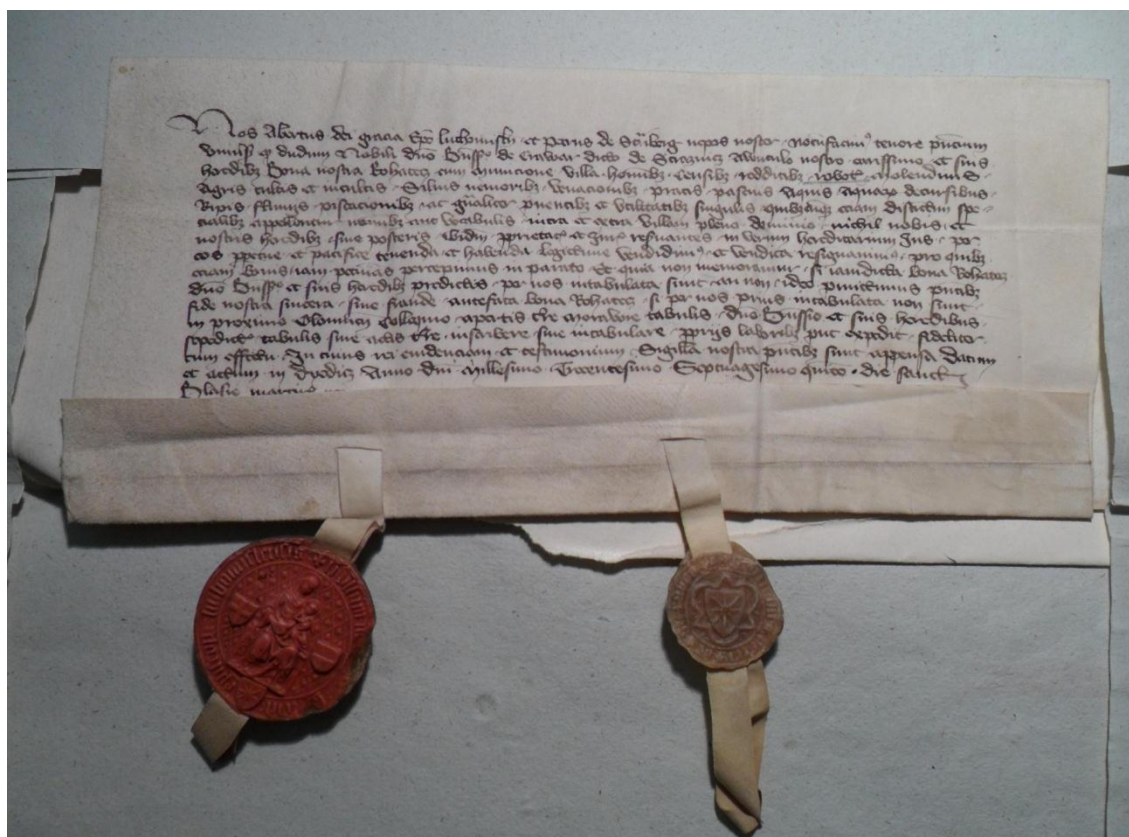 Nos Albertus dei gracia Ep̄s luthomissn̄ et Petrus de Stm̄berg nepos noster notūfacim⁹ tenore pn̄cium
vniūsis qd dudum Nobili dn̄o de Crawar dicto de Straznicz Auunculo nostro carissimo et suis
heredibꝫ Bona nostra Rohatecz cum municione villa homībꝫ censibꝫ redditibꝫ robot molendinis
Agris cultis et incultis Siluis nemoribꝫ venacionibꝫ pratis pascuis aquis aquarꝫ decursibꝫ
Ripis fluuijs piscacionibꝫ ac gn̄aliter puentibꝫ et vtilitatibꝫ singulis quibꝫcūqꝫ eciam distinctim spe-
cialibꝫ appellentur noīnibꝫ aut vocabulis intra et extra villam pleno dominio nichil nobis et
nostris heredibꝫ siue posteris ibidem pprietatis et Juris resruantes in verum hereditarium Jus per
eos ppetue et pacifice tenenda et habenda legittime vendidim⁹ et vendita resignauim⁹ pro quibꝫ
eciam Bonis iam pecunias percepimus in parato Et quia non memoramur si iamdicta bona Rohatecz
dn̄o et suis heredibꝫ predictis per nos intabulata sint an non ideo pmittimus pn̄tibꝫ
fide nostra sincera sine fraude antefata bona Rohatecz si per nos prius intabulata non sunt
in proximo Olomucn̄ Colloquio aptis tr̄re morauie tabulis dn̄o et suis heredibus
sepedictis tabulis siue actis tr̄re inscribere siue intabulare pprijs laboribꝫ put expedit fideliter
cum effectu In cuius rei euidenciam et testimonium Sigilla nostra pn̄tibꝫ sunt appensa Datum
et actum in Anno dn̄i Millesimo Trecentesimo Septuagesimo quito die sancti
Blasie martiris